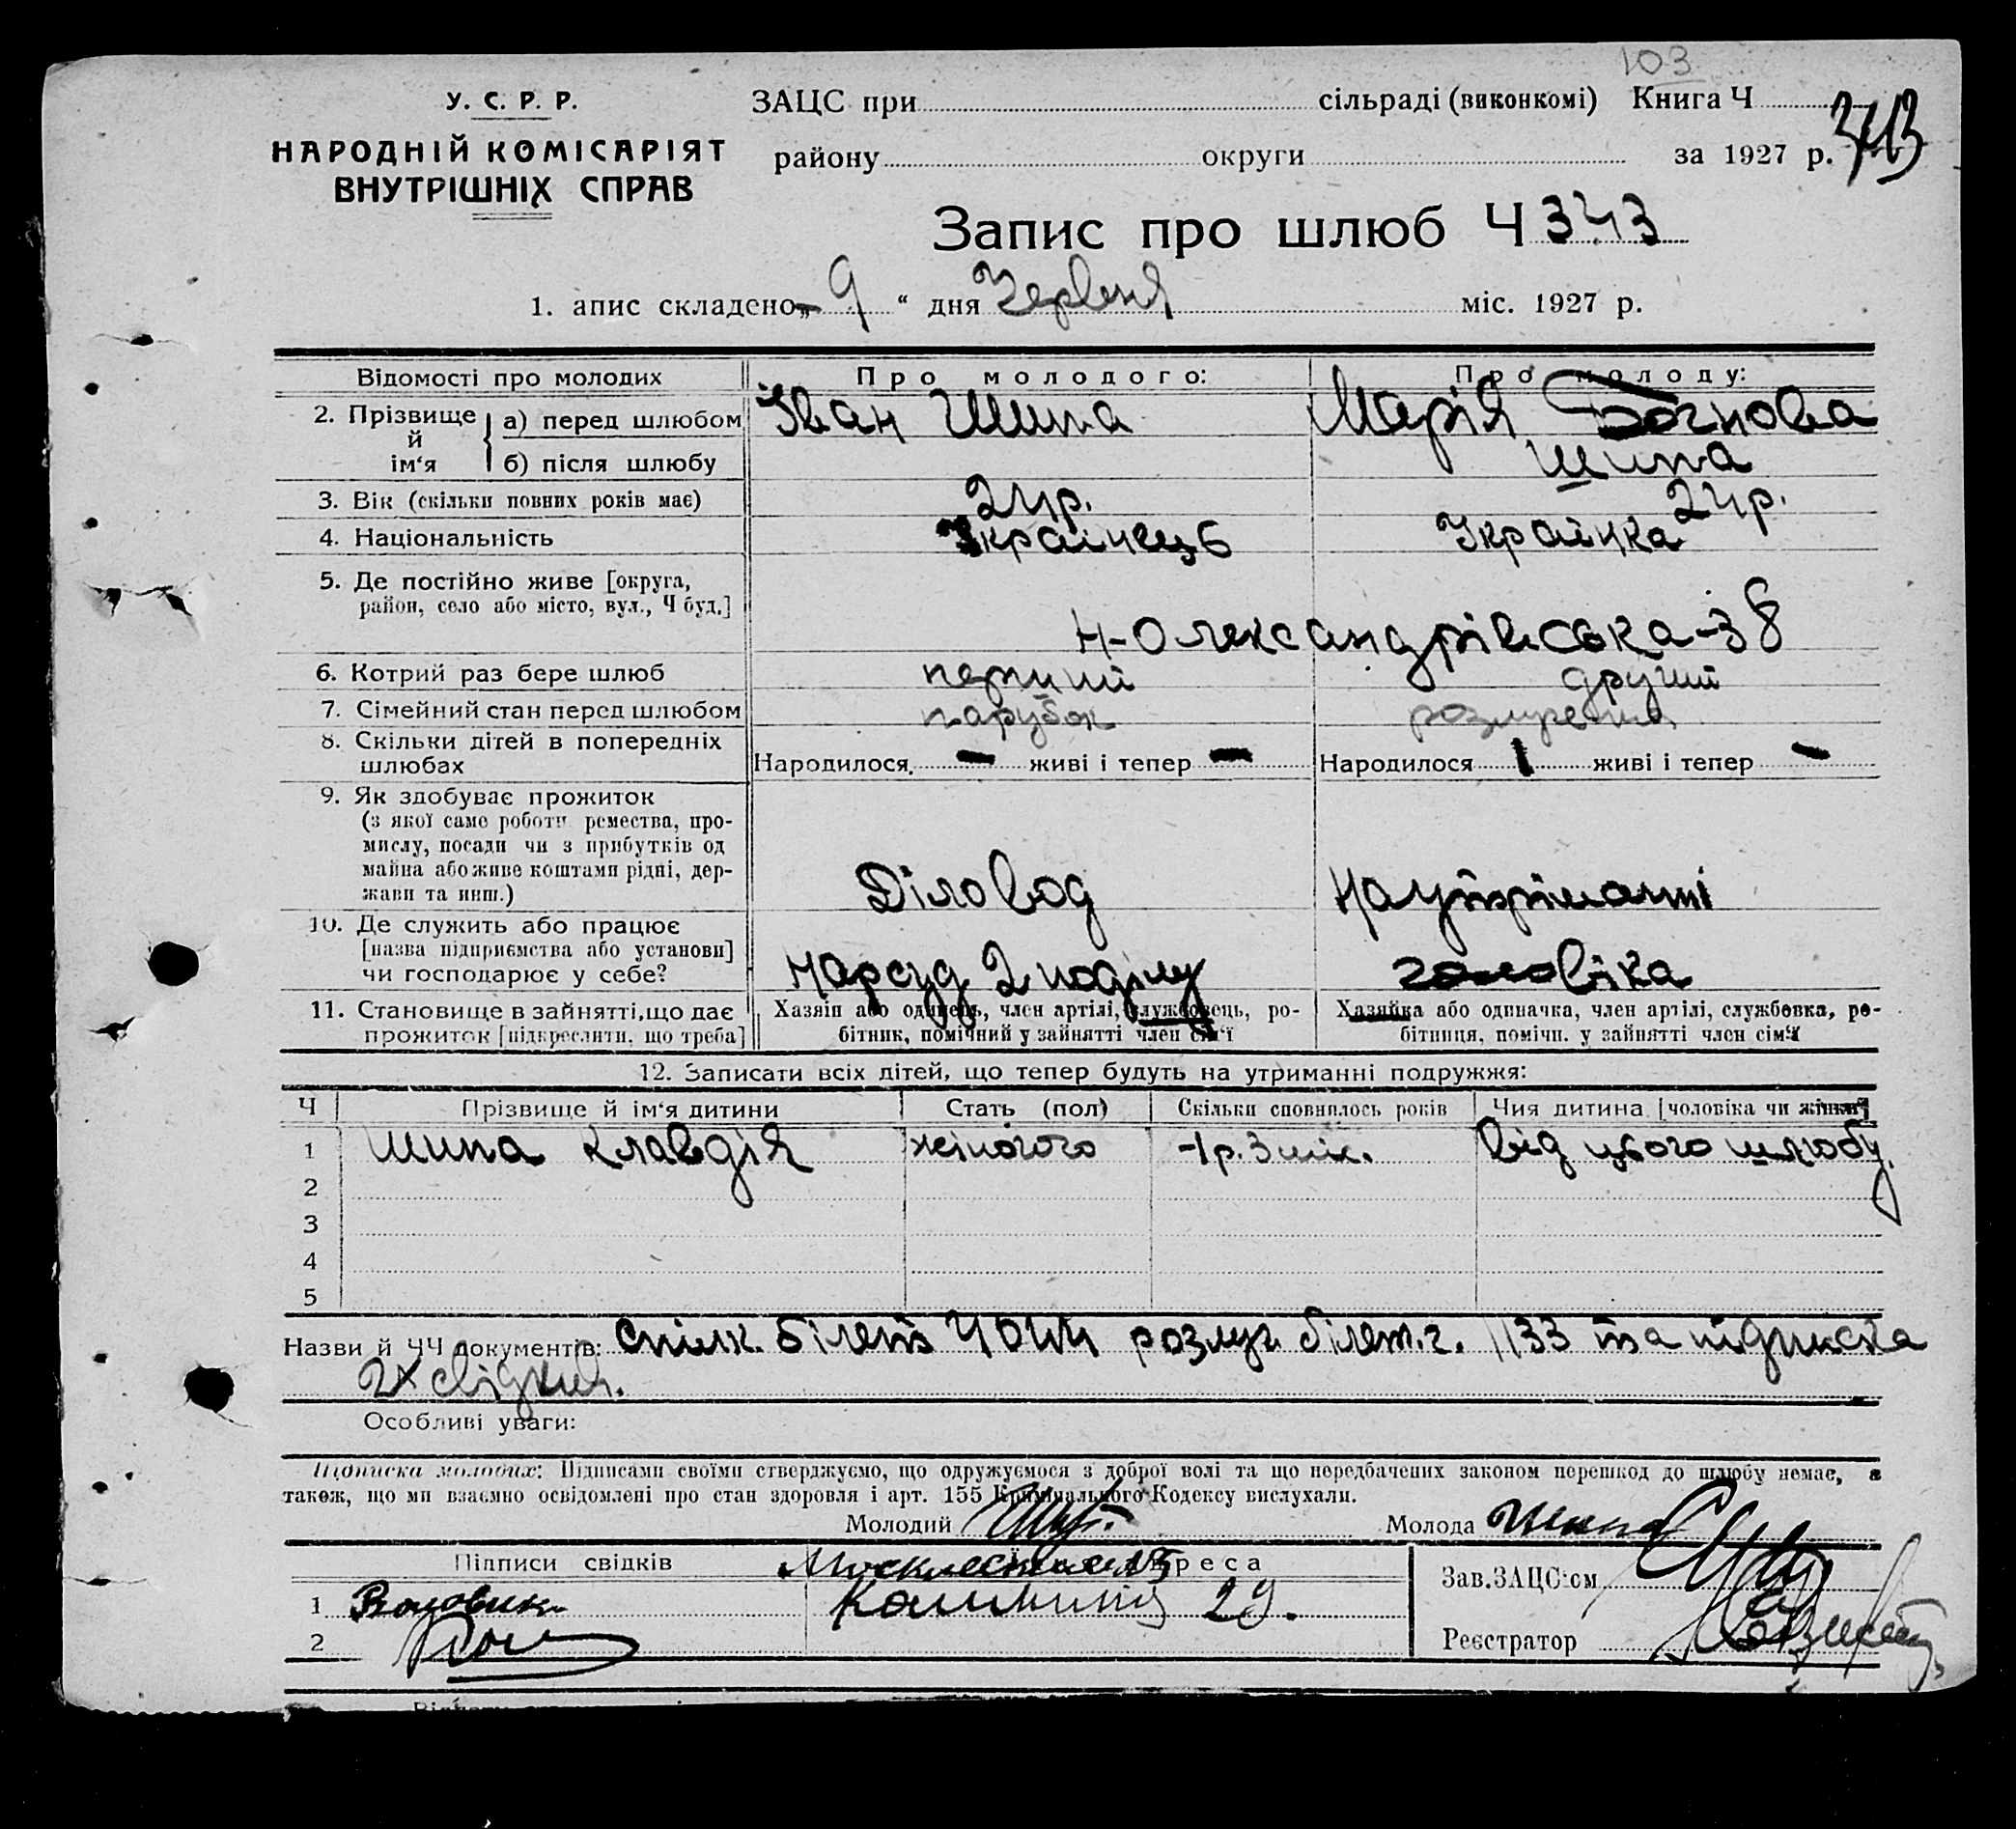 103
У. С. Р. Р.
НАРОДНІЙ КОМІСАРІЯТ
ВНУТРІШНІХ СПРАВ
ЗАЦС при сільраді (виконкомі) Книга Ч
району округи за 1927 р. 343
Запис про шлюб Ч 343
1. апис складено „ 9 “ дня Червня міс. 1927 р.
Відомості про молодих Про молодого: Про молоду:
2. Прізвище й ім‘я а) перед шлюбом Іван Шипа Марія
б) після шлюбу Шипа
3. Вік (скільки повних років має) 24р. 24р.
4. Національність Українець Українка
5. Де постійно живе [округа,
район, село або місто, вул., Ч буд.]
Н-Олександрівська-38
6. Котрий раз бере шлюб перший другий
7. Сімейний стан перед шлюбом парубок
8. Скільки дітей в попередніх
шлюбах Народилося - живі і тепер - Народилося 1 живі і тепер -
9. Як здобуває прожиток
(з якої само роботи ремества, про-
мислу, посади чи з прибутків од
майна або живе коштами рідні, дер-
жави та инш.) Діловод На утриманні
10. Де служить або працює
[назва підприємства або установи]
чи господарює у себе? Нарсуд 2 поділу
11. Становище в зайнятті, що дає
прожиток [підкреслити, що треба]
Хазяїн або одинець, член артілі, службовець, ро-
бітник, помічний у зайнятті член сім‘ї
Хазяйка або одиначка, член артілі, службовка, ро-
бітниця, помічн. у зайнятті член сім‘ї
12. Записати всіх дітей, що тепер будуть на утриманні подружжя:
Ч Прізвище й ім‘я дитини Стать (пол) Скільки сповнилось років Чия дитина [чоловіка чи жінки]
1 Шипа Клавдія жіночого 1 р. 3 міс. Від цього шлюбу
2
3
4
5
Назви й ЧЧ документів: Спілк. білет розлуч. білет. г. 1133 та підписка
2х свідків.
Особливі уваги:
Підписка молодих: Підписами своїми стверджуємо, що одружуємося з доброї волі та що передбачених законом перешкод до шлюбу немає, а
також, що ми взаємно освідомлені про стан здоровля і арт. 155 Кримінального Кодексу вислухали.
Молодий Молода Шипа
Підписи свідків Адреса
Зав. ЗАЦС‘ом
1 29.
2
Реєстратор